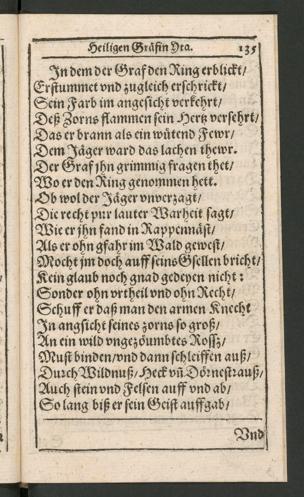 Heiligen Gräfin Yta. 135
In dem der Graf den Ring erblickt/
Erstummet vnd zugleich erschrickt/
Sein Farb im angesicht verkehrt/
Deß Zorns flammen sein Hertz versehrt/
Das er brann als ein wütend Fewr/
Dem Jäger ward das lachen thewr.
Der Graf jhn grimmig fragen thet/
Wo er den Ring genommen hett.
Ob wol der Jäger vnverzagt/
Die recht pur lauter Warheit sagt/
Wie er jhn fand in Rappennäst/
Als er ohn gfahr im Wald gewest/
Mocht jm doch auff seins Gsellen bricht/
Kein glaub noch gnad gedeyen nicht:
Sonder ohn vrtheil vnd ohn Recht/
Schuff er daß man den armen Knecht
In angsicht seines zorns so groß/
An ein wild vngezöumbtes Rossz/
Must binden/vnd dann schleiffen auß/
Durch Wildnuß/Heck vñ Dörnestrauß/
Auch stein vnd Felsen auff vnd ab/
So lang biß er sein Geist auffgab/
Vnd